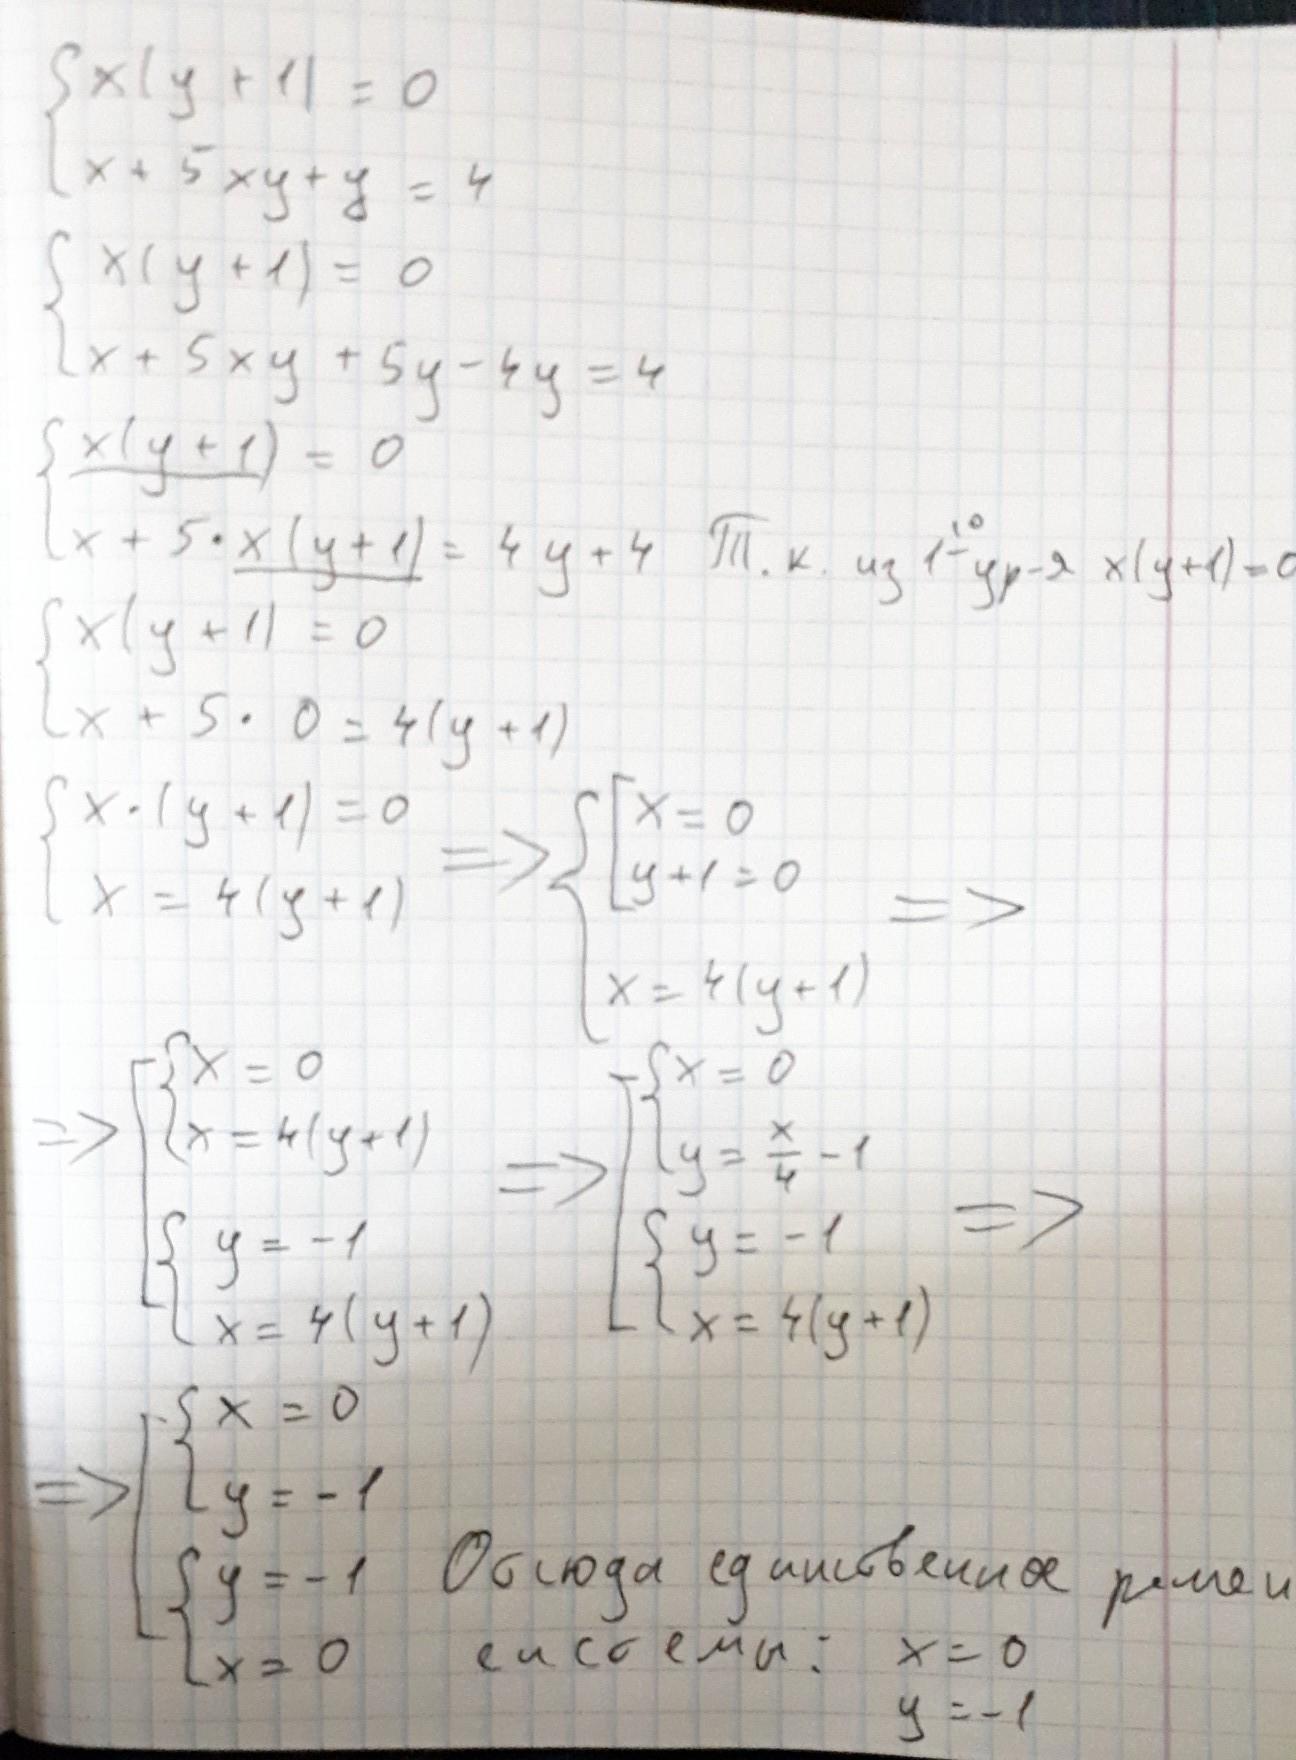 { x(y + 1) = 0
{ x + 5xy + y = 4
{ x(y + 1) = 0
{ x + 5xy + 5y - 4y = 4
{ x(y + 1) = 0
{ x + 5·x(y+1) = 4y + 4 Т.к. из 1-го ур-я x(y+1)=0
{ x(y + 1) = 0
{ x + 5· 0 = 4(y + 1)
{ x·(y + 1) = 0
{ x = 4(y + 1)
=> { [ x = 0
[ y + 1 = 0
x = 4(y+1)
=>
=> [ { x = 0
{ x = 4(y+1)
{ y = -1
{ x = 4(y + 1)
=> [ { x = 0
{ y = x/4 - 1
{ y = -1
{ x = 4(y+1)
=>
=> [ { x = 0
{ y = -1
{ y = -1
{ x = 0
Отсюда единственное решен
системы: x = 0
y = -1